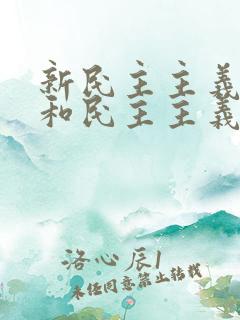 新民主主義
和民主主義
洛心辰1
未经同意禁止转载